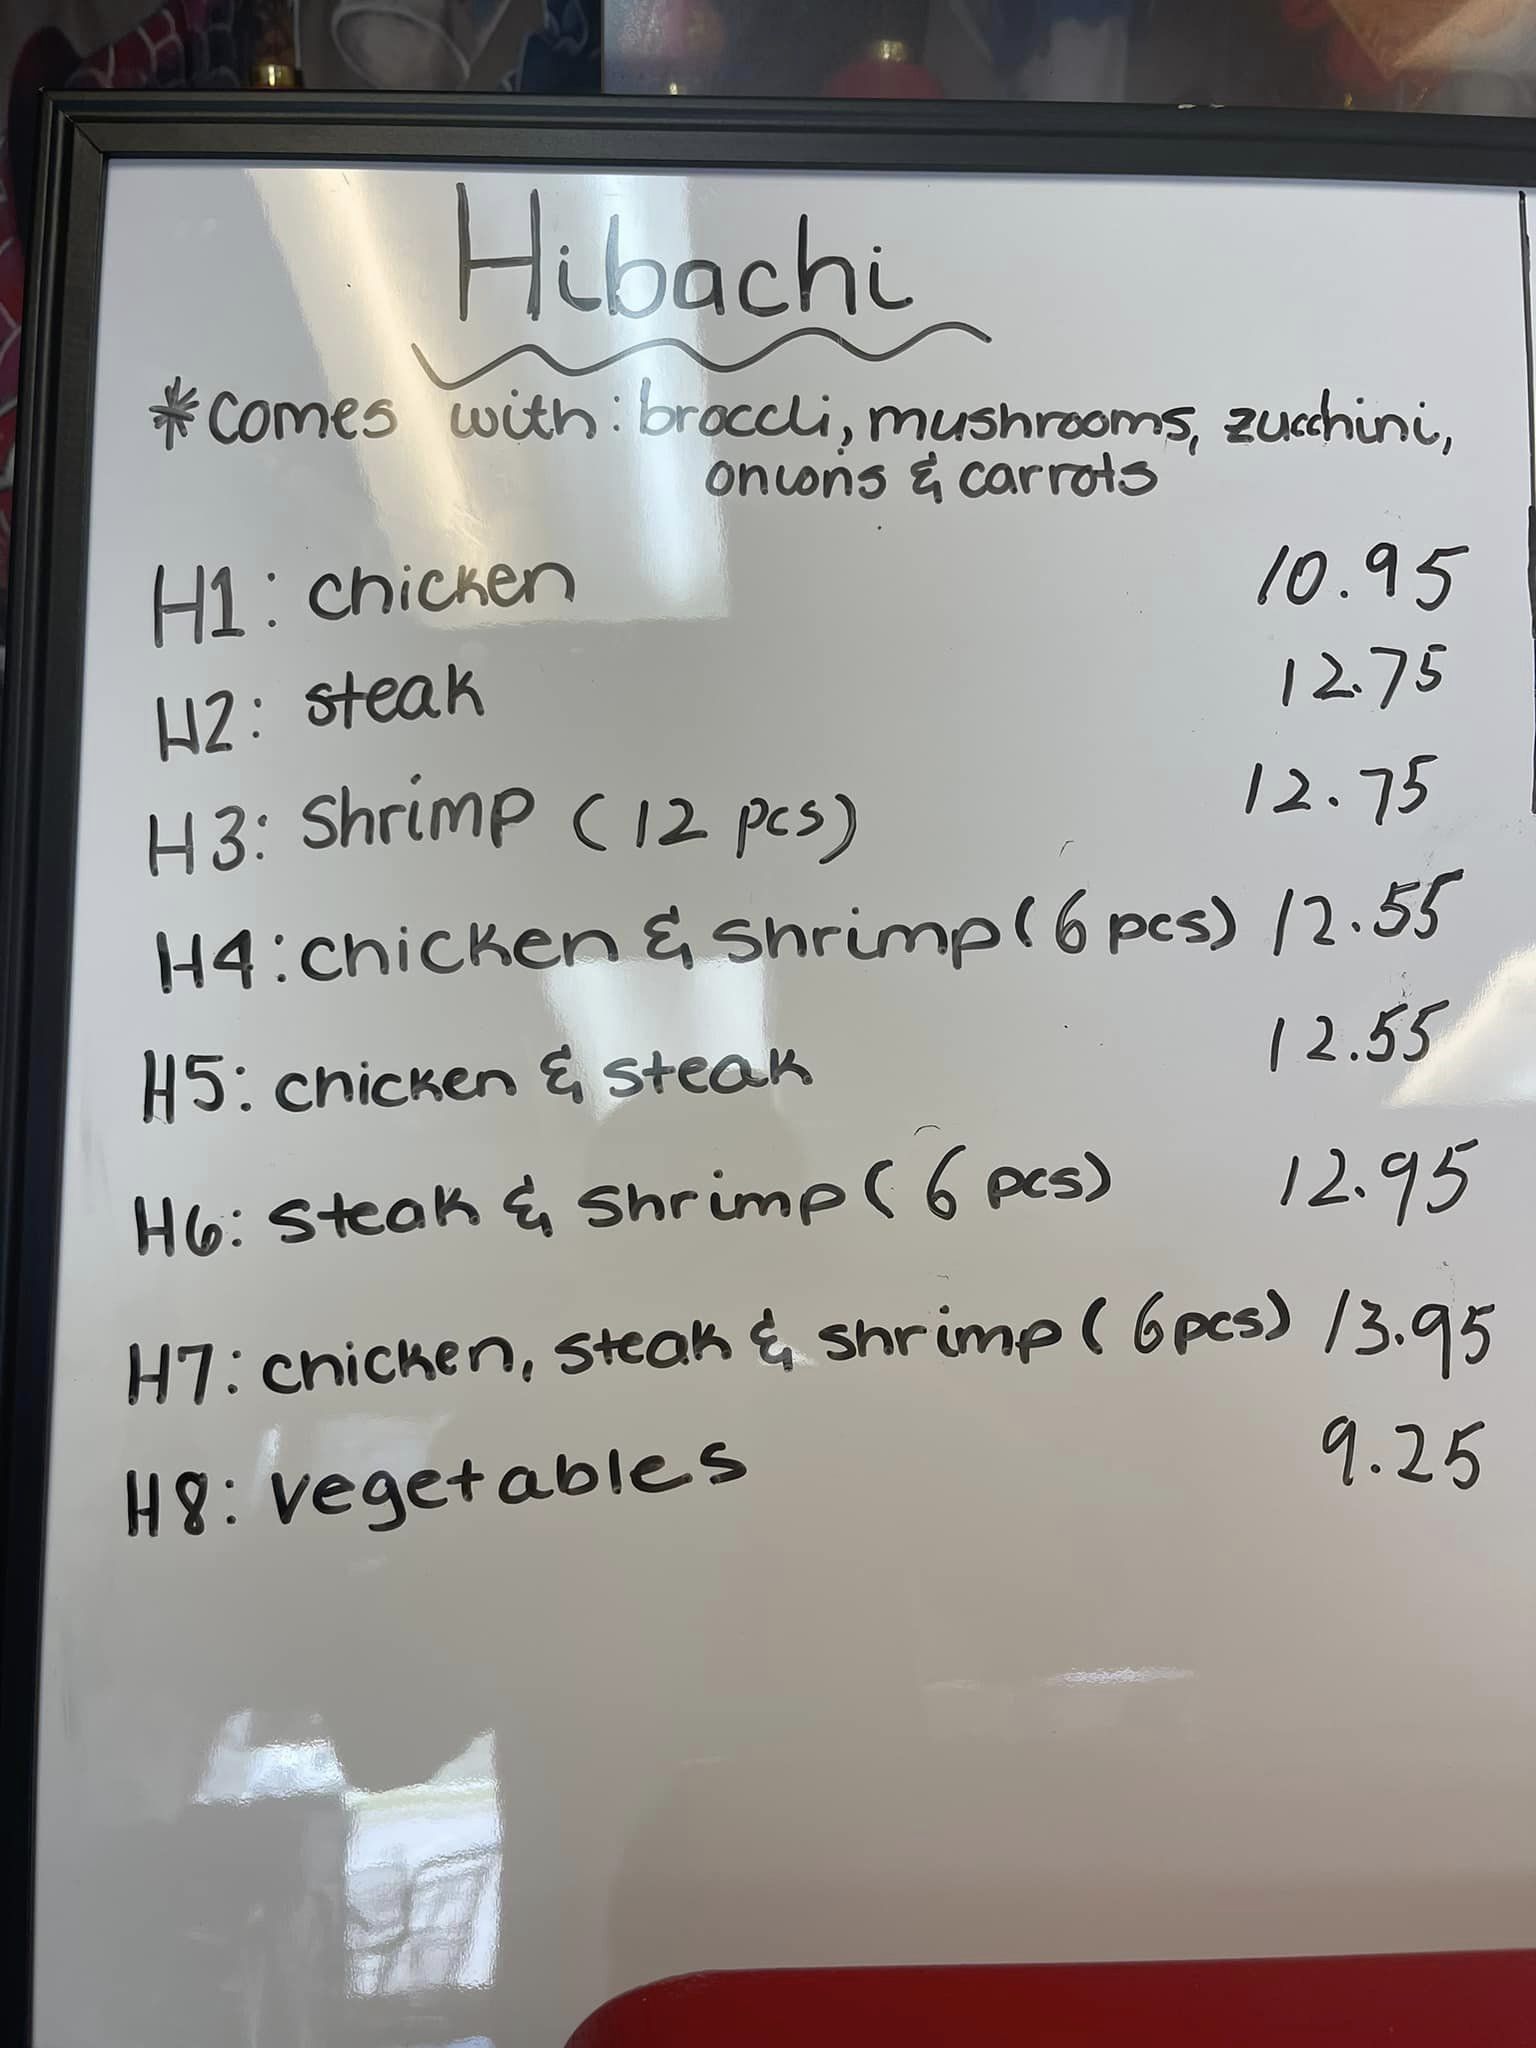 Hibachi
*Comes with: broccli, mushrooms, zucchini,
onions & carrots
H1: chicken 10.95
H2: steak 12.75
H3: Shrimp (12 pcs) 12.75
H4: chicken & shrimp (6 pcs) 12.55
H5: chicken & steak 12.55
H6: steak & shrimp (6 pcs) 12.95
H7: chicken, steak & shrimp (6 pcs) 13.95
H8: vegetables 9.25